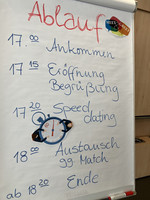 Ablauf
17.00 Ankommen
17 15 Eröffnung
Begrüßung
17 20 Speed
dating
18 00 Austausch
gg Match
ab 18 20 Ende